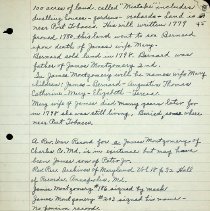 100 acres of land. called "Mistake" includes
dwelling houses - gardens - orchards Land is
near Port Tobacco. His will written 1779 45
proved 1780 this land went to son Bernard
upon death of James' wife Mary.
Bernard sold land in 1798. Bernard was
father of James Montgomery 2nd.
In James Montgomery will he names wife Mary
children: James - Bernard - Augustine Thomas
Catherine - Mary - Elizabeth - Teresa
Mary wife of James died many years later for
in 1798 she was still living. Buried some where
near Port Tobacco.
A Rev. War Record for James Montgomery of
Charles Co. Md. is in existence but may have
been James son of Peter Jr.
Rec. Rev. Archives of Maryland Vol 18 p 32 Hall
of Records, Annapolis, Md.
James Montgomery # 186 signed by mark
James Montgomery # 242 signed his name -
no pension records